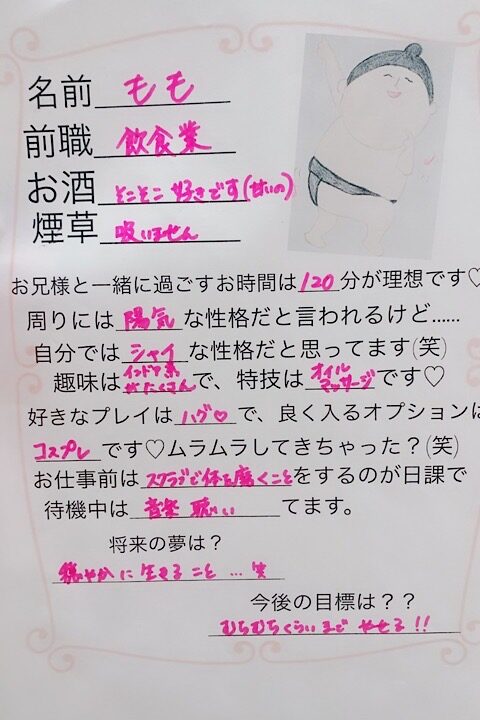 名前 もも
前職 飲食業
お酒 そこそこ好きです(甘いの)
煙草 吸いません
お兄様と一緒に過ごすお時間は120分が理想です♡
周りには陽気な性格だと言われるけど......
自分ではシャイな性格だと思ってます(笑)
趣味はインドア系がたくさんで、特技はオイルマッサージです♡
好きなプレイはハグ♡で、良く入るオプションは
コスプレです♡ムラムラしてきちゃった？(笑)
お仕事前はスクラブで体を磨くことをするのが日課で
待機中は音楽聴いてます。
将来の夢は？
穏やかに生きること…笑
今後の目標は？？
むちむちくらいまでやせる!!